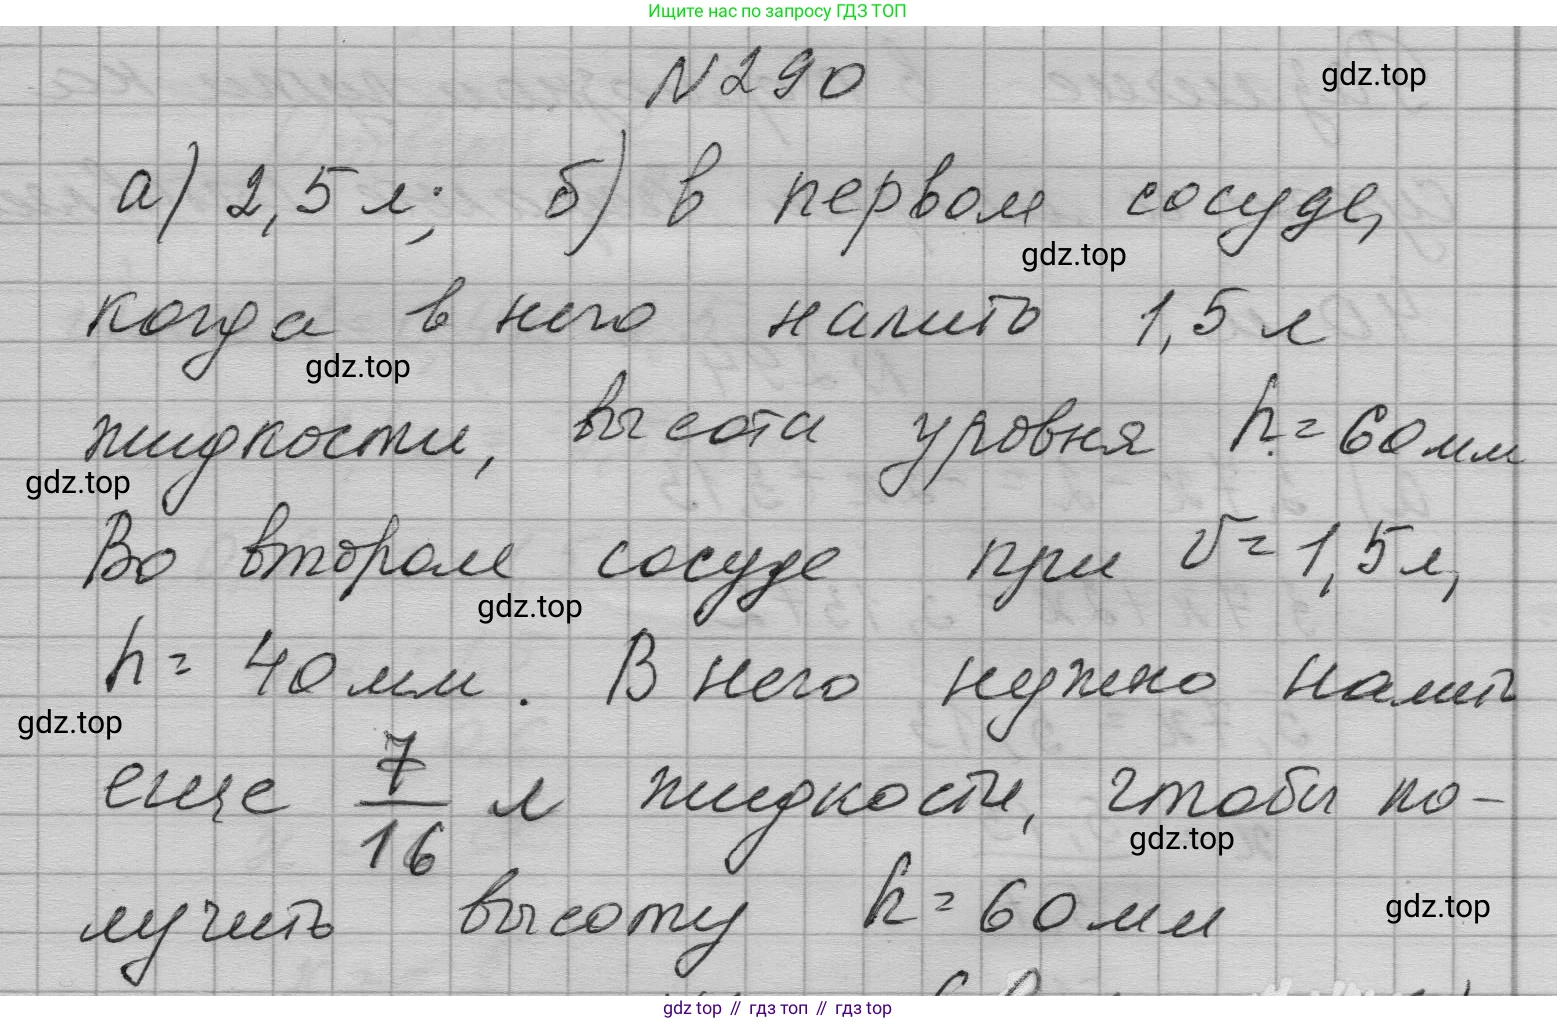 Ищите нас по запросу ГДЗ ТОП
N 290
gdz.top
а) 2,5 л; б) в первом сосуде,
gdz.top
когда в него налить 1,5 л
gdz.top
жидкости, высота уровня h = 60 мм
gdz.top
Во втором сосуде при V = 1,5 л,
gdz.top
h = 40 мм. В него нужно налить
gdz.top
еще 7/16 л жидкости, чтобы по-
gdz.top
лучить высоту h = 60 мм
gdz.top
gdz top // гдз топ // гдз.top